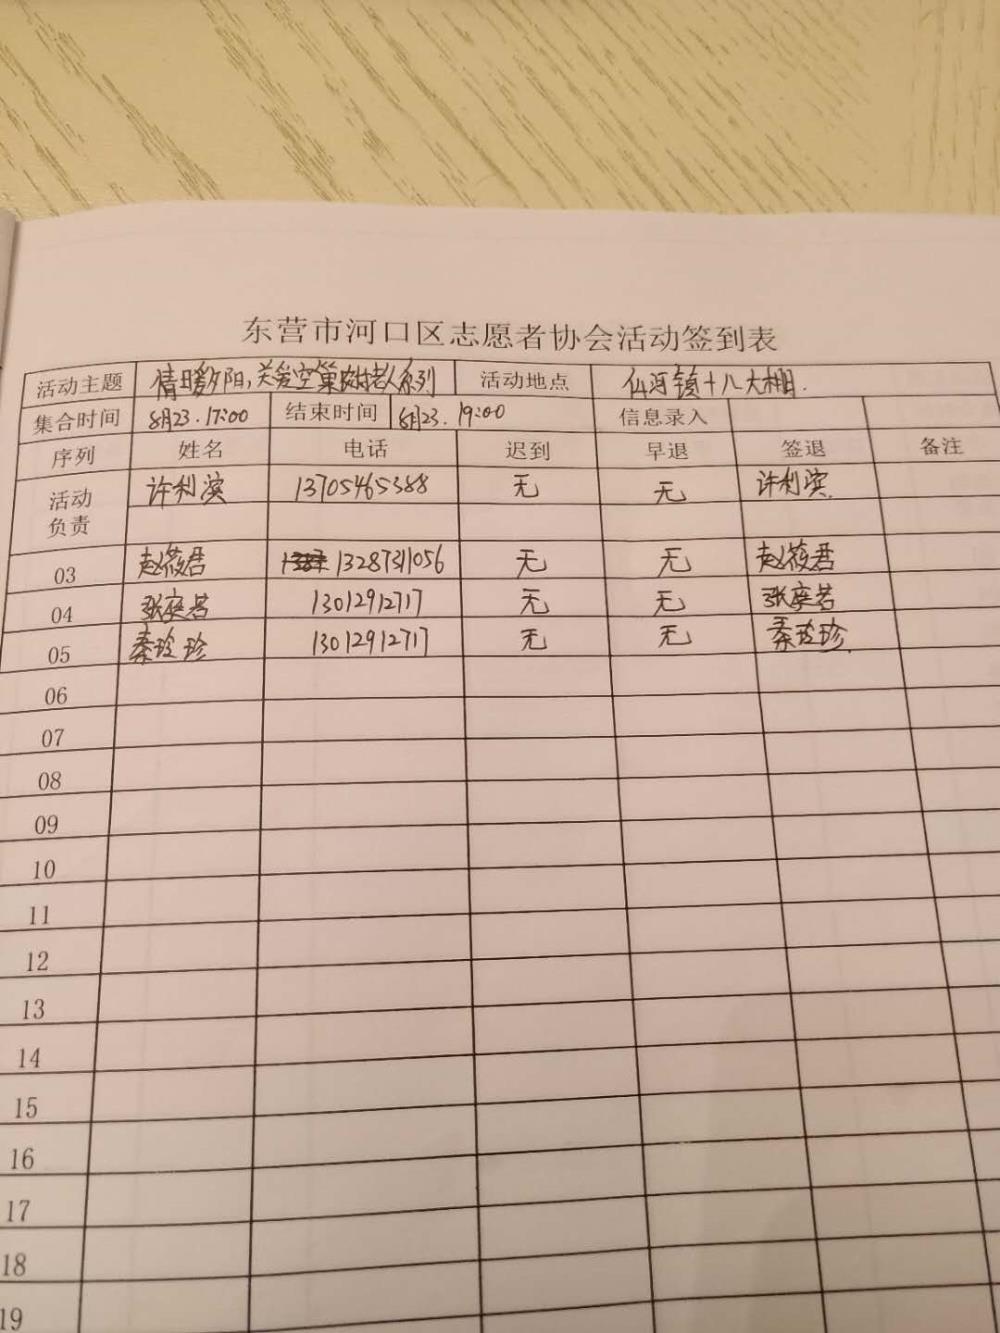 东营市河口区志愿者协会活动签到表
活动主题 情暖夕阳,关爱空巢农村老人系列 活动地点 仙河镇十八大棚.
集合时间 8月23.17:00 结束时间 8月23.19:00 信息录入
序列 姓名 电话 迟到 早退 签退 备注
活动负责 许利滨 13705465388 无 无 许利滨
03 赵筱君 13287311056 无 无 赵筱君
04 张奕若 13012912717 无 无 张奕若
05 秦玲珍 13012912717 无 无 秦玲珍
06
07
08
09
10
11
12
13
14
15
16
17
18
19